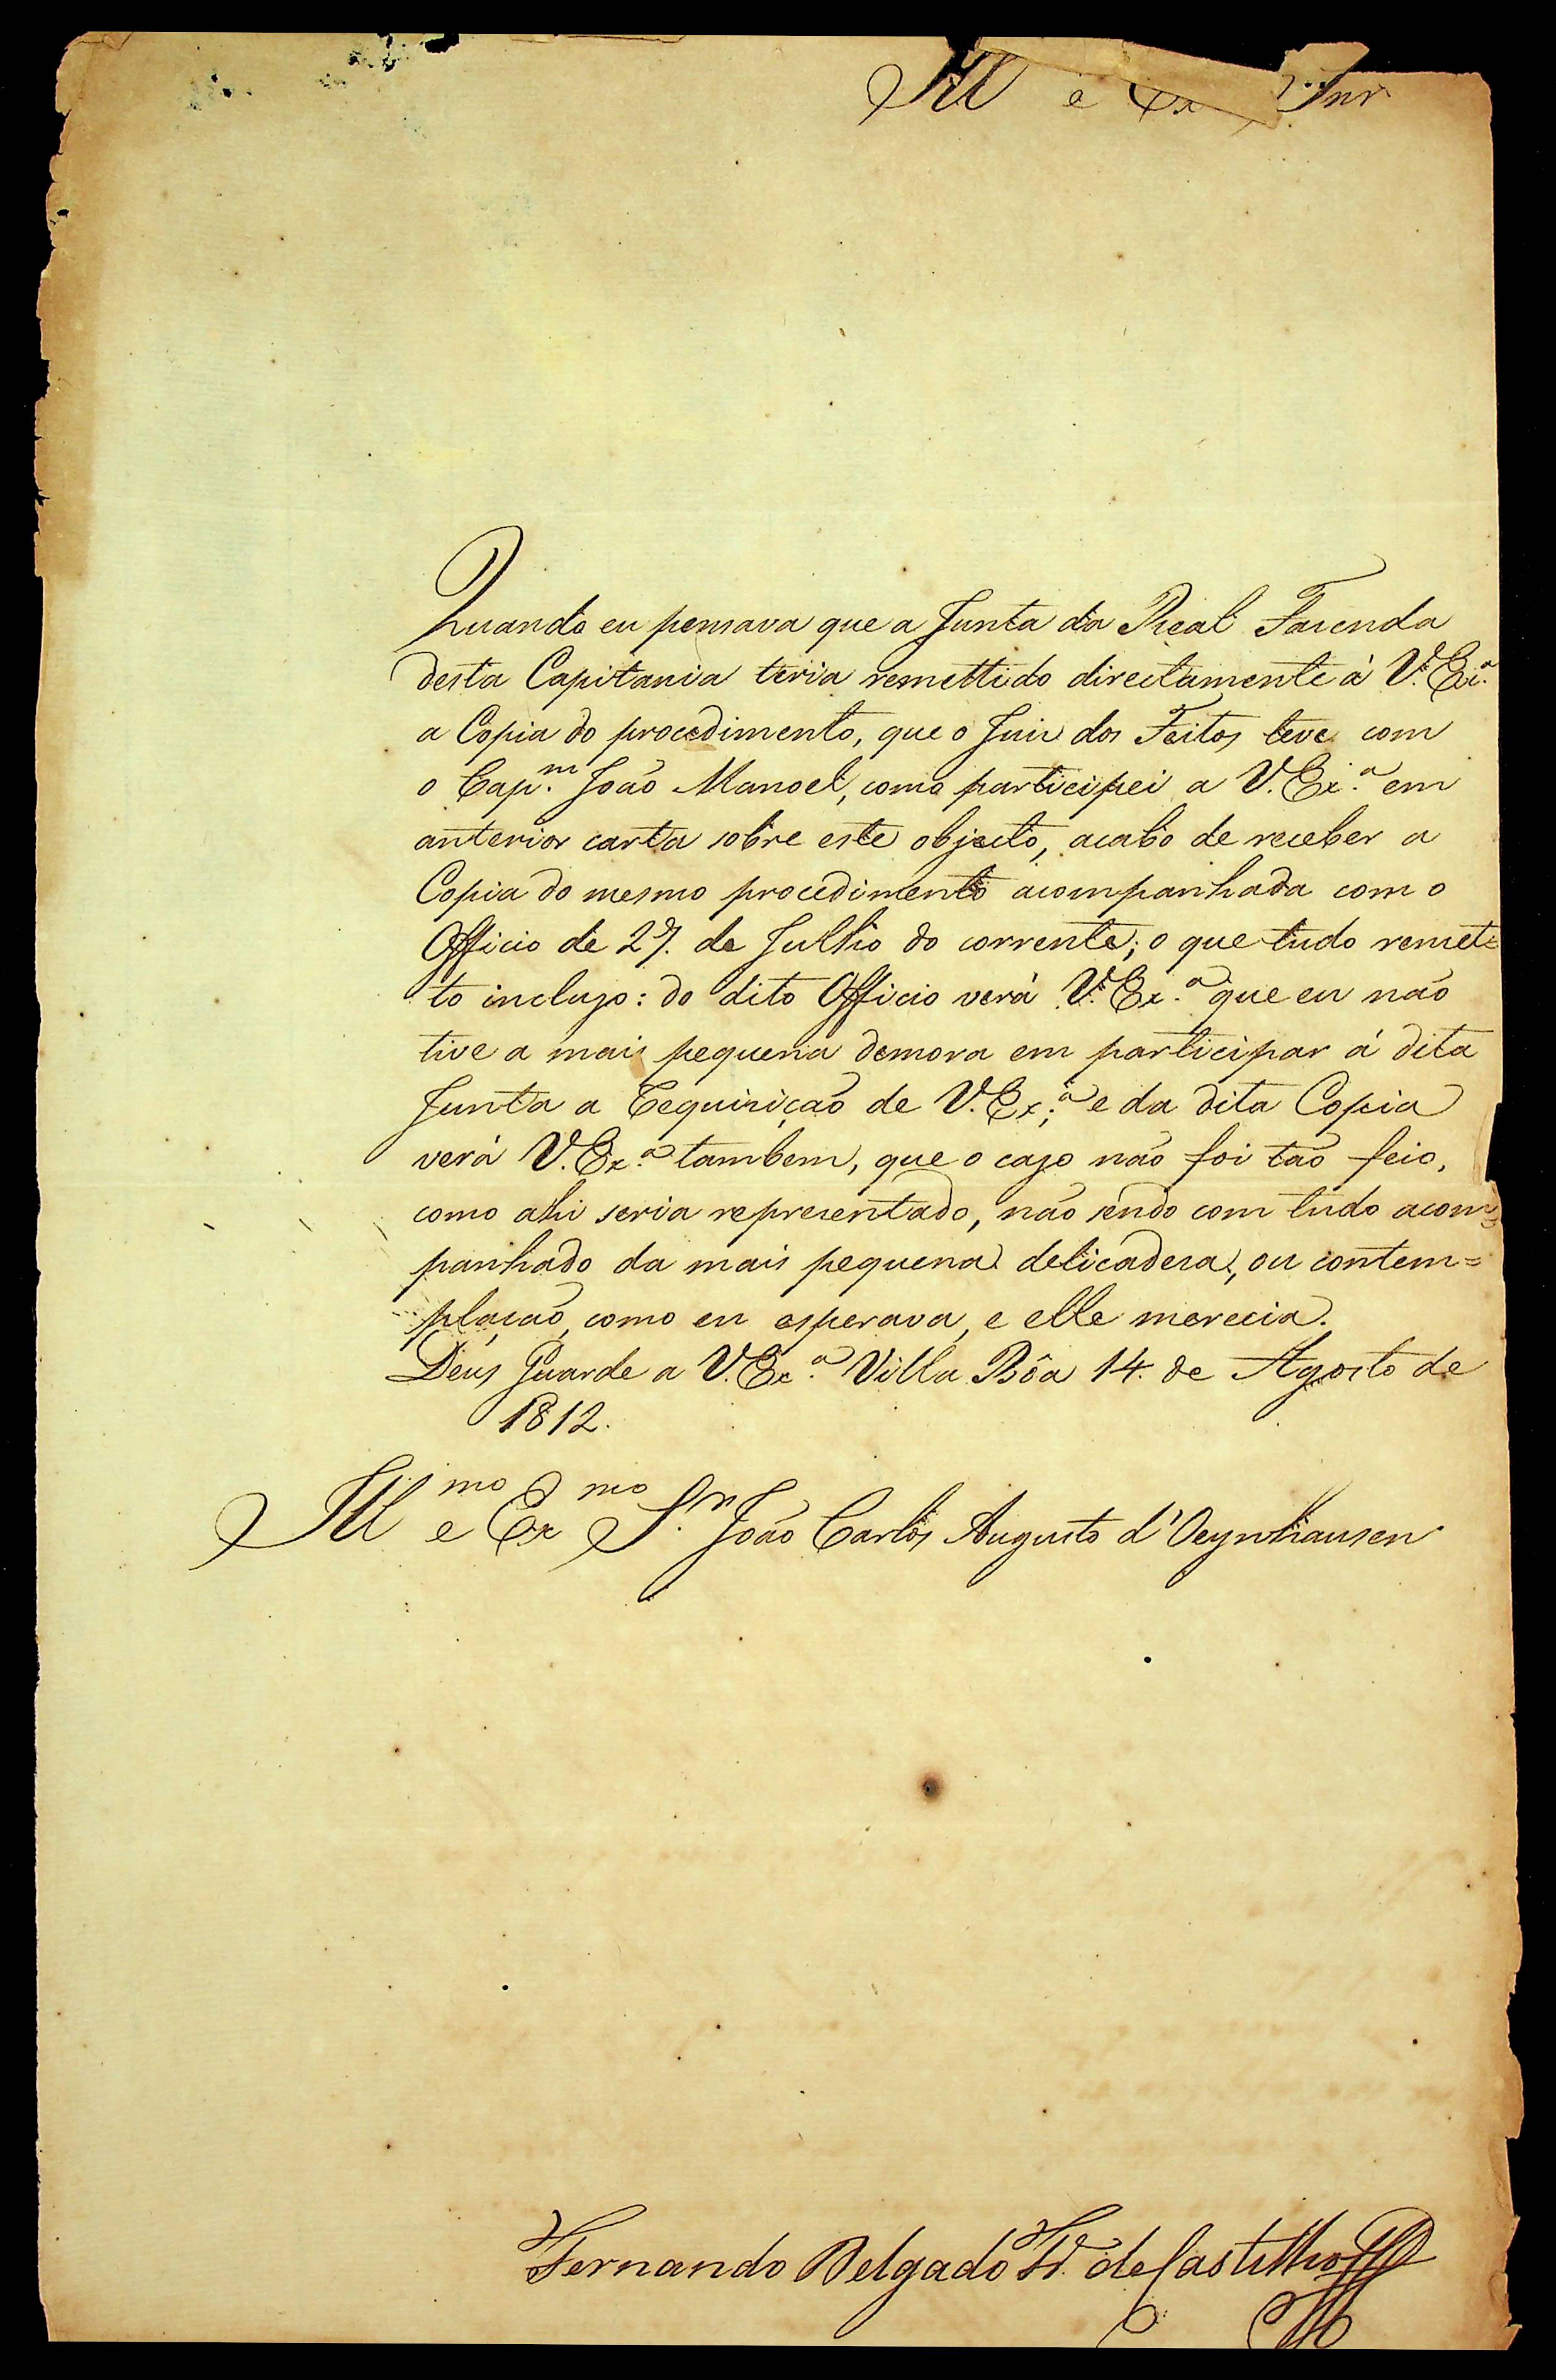 Ill e Ex Snr
Quando eu pensava que a Junta da Real Fazenda
desta Capitania teria remettido directamente á V. Ex.ª
a Copia do procedimento, que o Juiz dos Feitos teve com
o Cap.m João Manoel, como participei a V. Ex.ª em
anterior carta sobre este objecto, acabo de receber a
Copia do mesmo procedimento acompanhada com o
Officio de 27. de Julho do corrente; o que tudo remet=
to incluzo: do dito Officio verá V. Ex.ª que eu não
tive a mais pequena demora em participar á dita
Junta a Requizição de V. Ex;ª e da dita Copia
verá V. Ex.ª tambem, que o cazo não foi tão feio,
como ahi seria reprezentado, não sendo com tudo acom=
panhado da mais pequena delicadeza, ou contem=
plação, como eu esperava, e elle merecia.
Deus Guarde a V. Ex.ª Villa Bôa 14. de Agosto de
1812.
Ill mo e Ex mo S.r João Carlos Augusto d'Oeynhausen
Fernando Delgado Fr. de Castilho